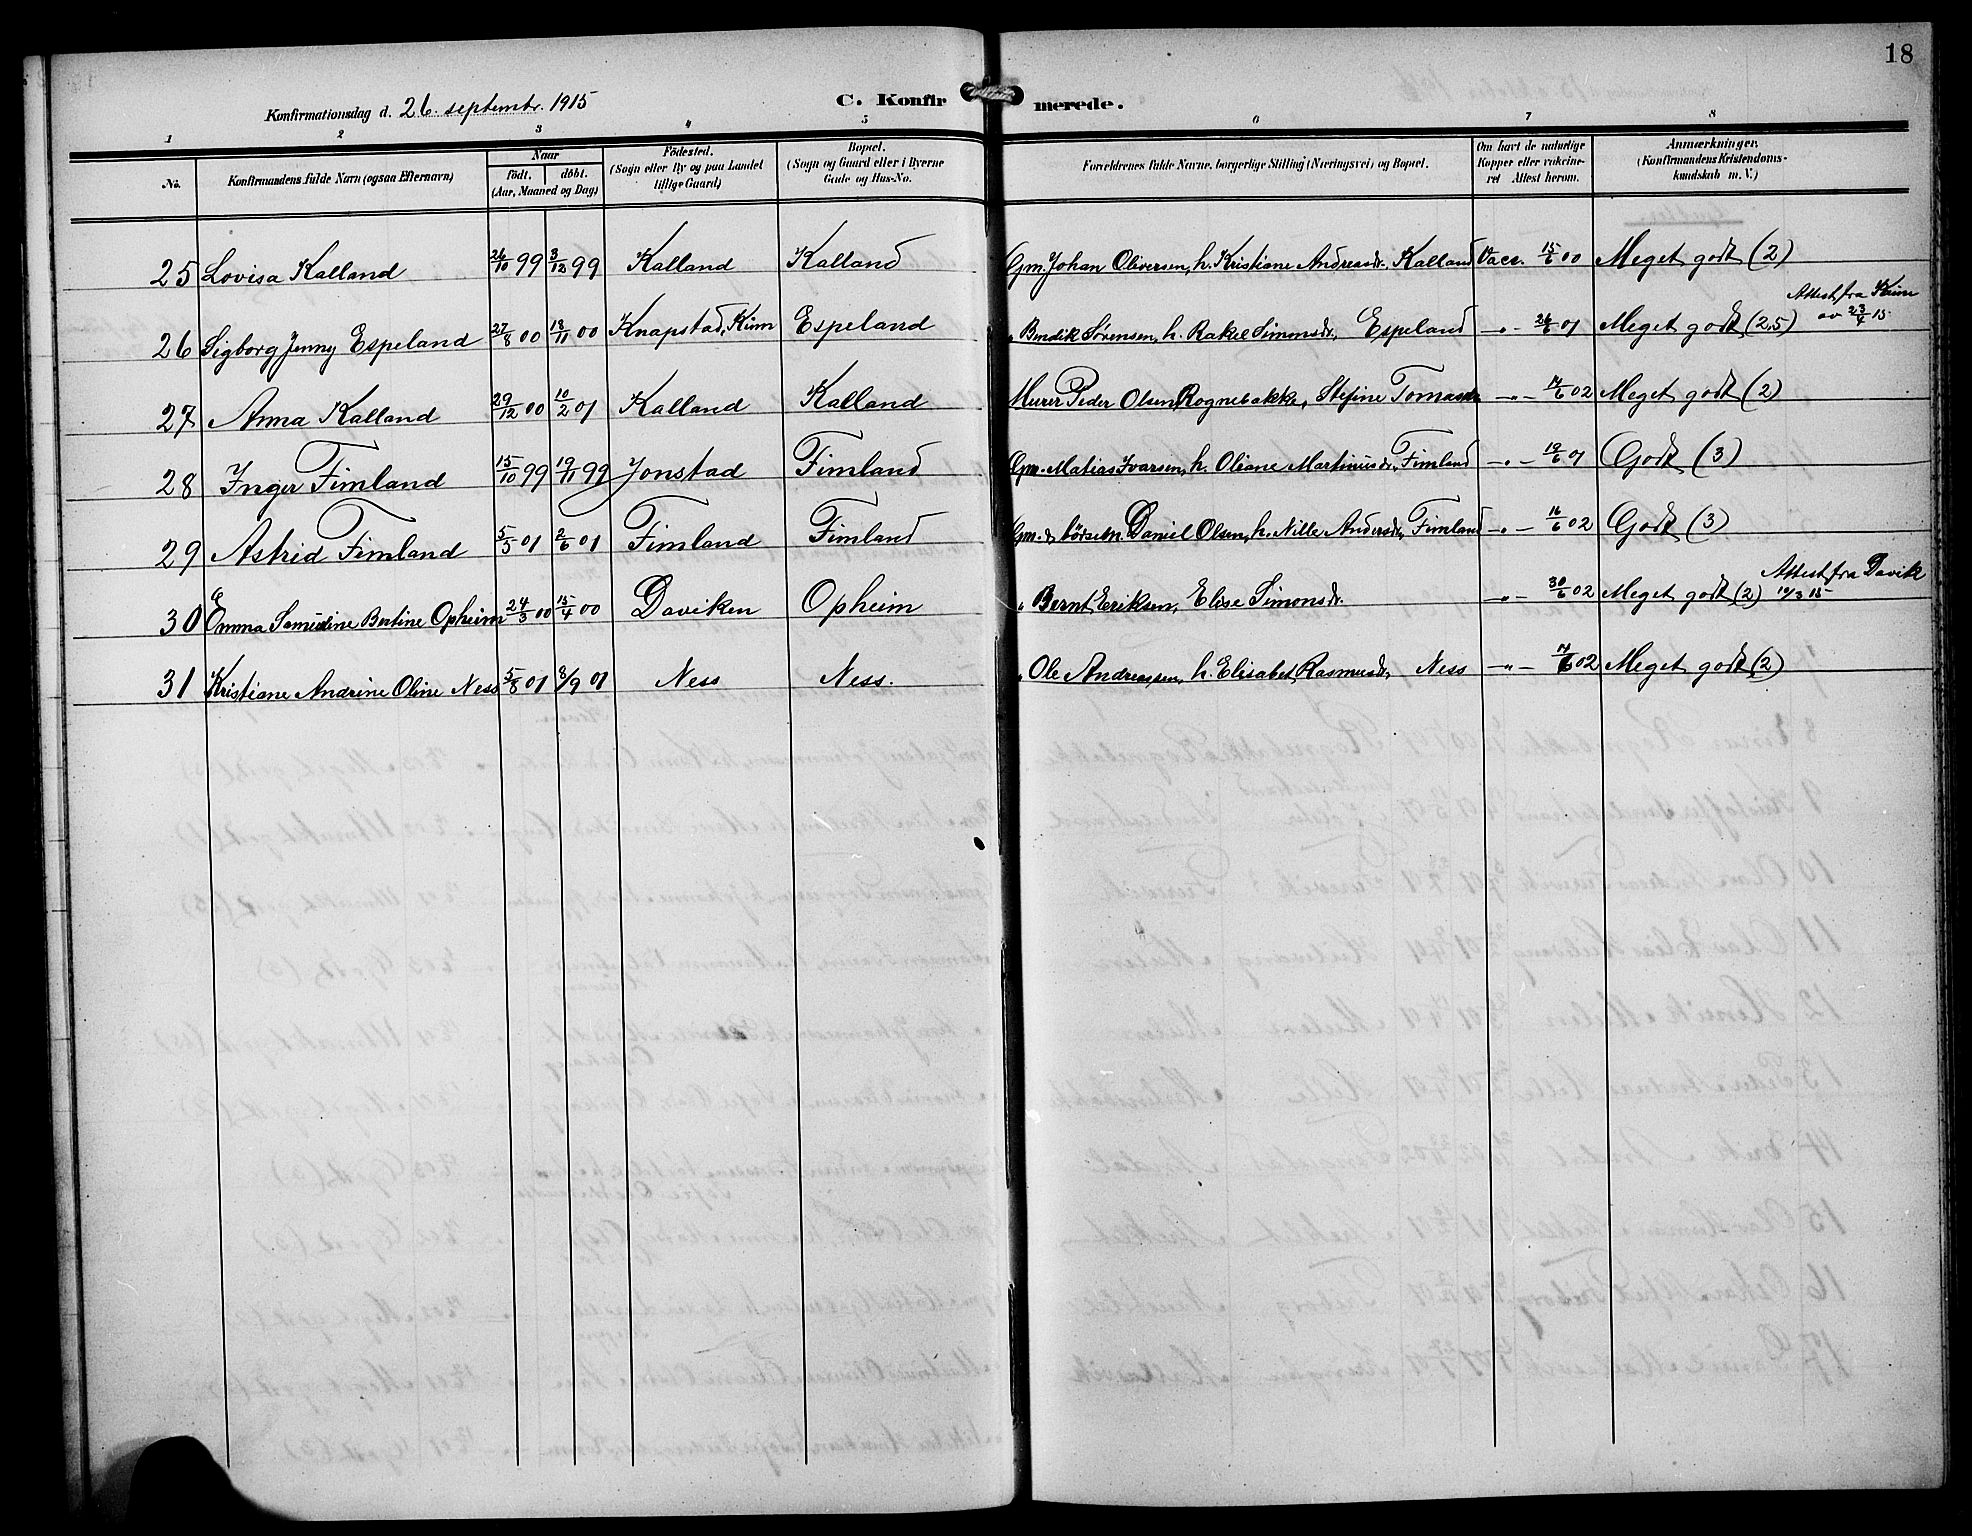 18
Konfirmationsdag d. 26. septembr. 1915
C. Konfirmerede.
1 2 3 4 5 6 7 8
No.
Konfirmandens fulde Navn (ogsaa Efternavn)
Naar
født. døbt.
(Aar, Maaned og Dag)
Födested.
(Sogn eller By og paa Landet
tillige Gaard)
Bopæl.
(Sogn og Gaard eller i Byerne
Gade og Hus-No.
Forældrenes fulde Navne, borgerlige Stilling (Næringsvei) og Bopæl.
Om havt de naturlige
Kopper eller vakcine-
ret Attest herom.
Anmærkninger.
(Konfirmandens Kristendoms-
kundskab m. V.)
25 Lovisa Kalland 26/10 99 3/12 99 Kalland Kalland Gm. Johan Oliversen, h. Kristiane Andreasdr., Kalland Vacc. 15/6 00 Meget godt (2)
26 Sigborg Jenny Espeland 27/8 00 18/11 00 Knapstad, Kinn Espeland " Bendik Sørensen, h. Rakel Simonsdr., Espeland -"- 26/6 01 Meget godt (2,5) Attest fra Kinn
av 23/4 15.
27 Anna Kalland 29/12 00 10/2 01 Kalland Kalland Murer Peder Olsen Rognebakke, Stefine Tomasdr. -"- 17/6 02 Meget godt (2)
28 Inger Fimland 15/10 99 19/11 99 Jonstad Fimland Gm. Matias Ivarsen, h. Oliane Martinusdr., Fimland -"- 19/6 01 Godt (3)
29 Astrid Fimland 5/5 01 2/6 01 Fimland Fimland Gm. & børsem. Daniel Olsen, h. Nille Andersdr., Fimland -"- 16/6 02 Godt (3)
30 Emma Bertine Opheim 24/3 00 15/4 00 Daviken Opheim " Bernt Eriksen, Elise Simonsdr. -"- 30/6 02 Meget godt (2) Attest fra Davik
10/3 15
31 Kristiane Andrine Oline Ness 5/8 01 8/9 01 Ness Ness. " Ole Andreassen, h. Elisabet Rasmusdr., Ness -"- 17/6 02 Meget godt (2)